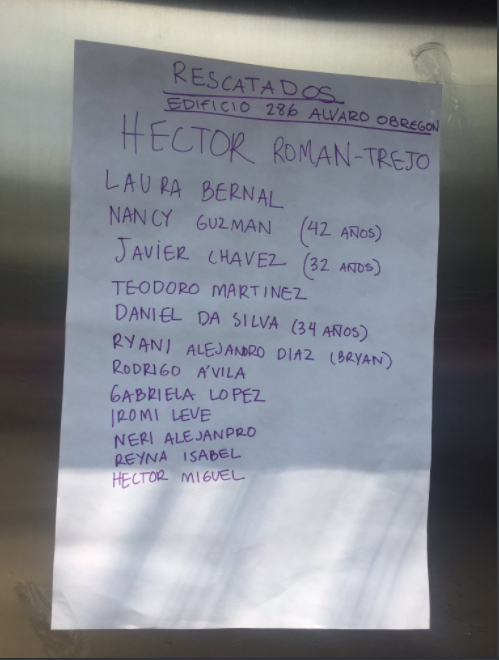 RESCATADOS
EDIFICIO 286 ALVARO OBREGON
HECTOR ROMAN-TREJO
LAURA BERNAL
NANCY GUZMAN (42 AÑOS)
JAVIER CHAVEZ (32 AÑOS)
TEODORO MARTINEZ
DANIEL DA SILVA (34 AÑOS)
RYANI ALEJANDRO DIAZ (BRYAN)
RODRIGO ÁVILA
GABRIELA LOPEZ
IROMI LEVE
NERI ALEJANDRO
REYNA ISABEL
HECTOR MIGUEL